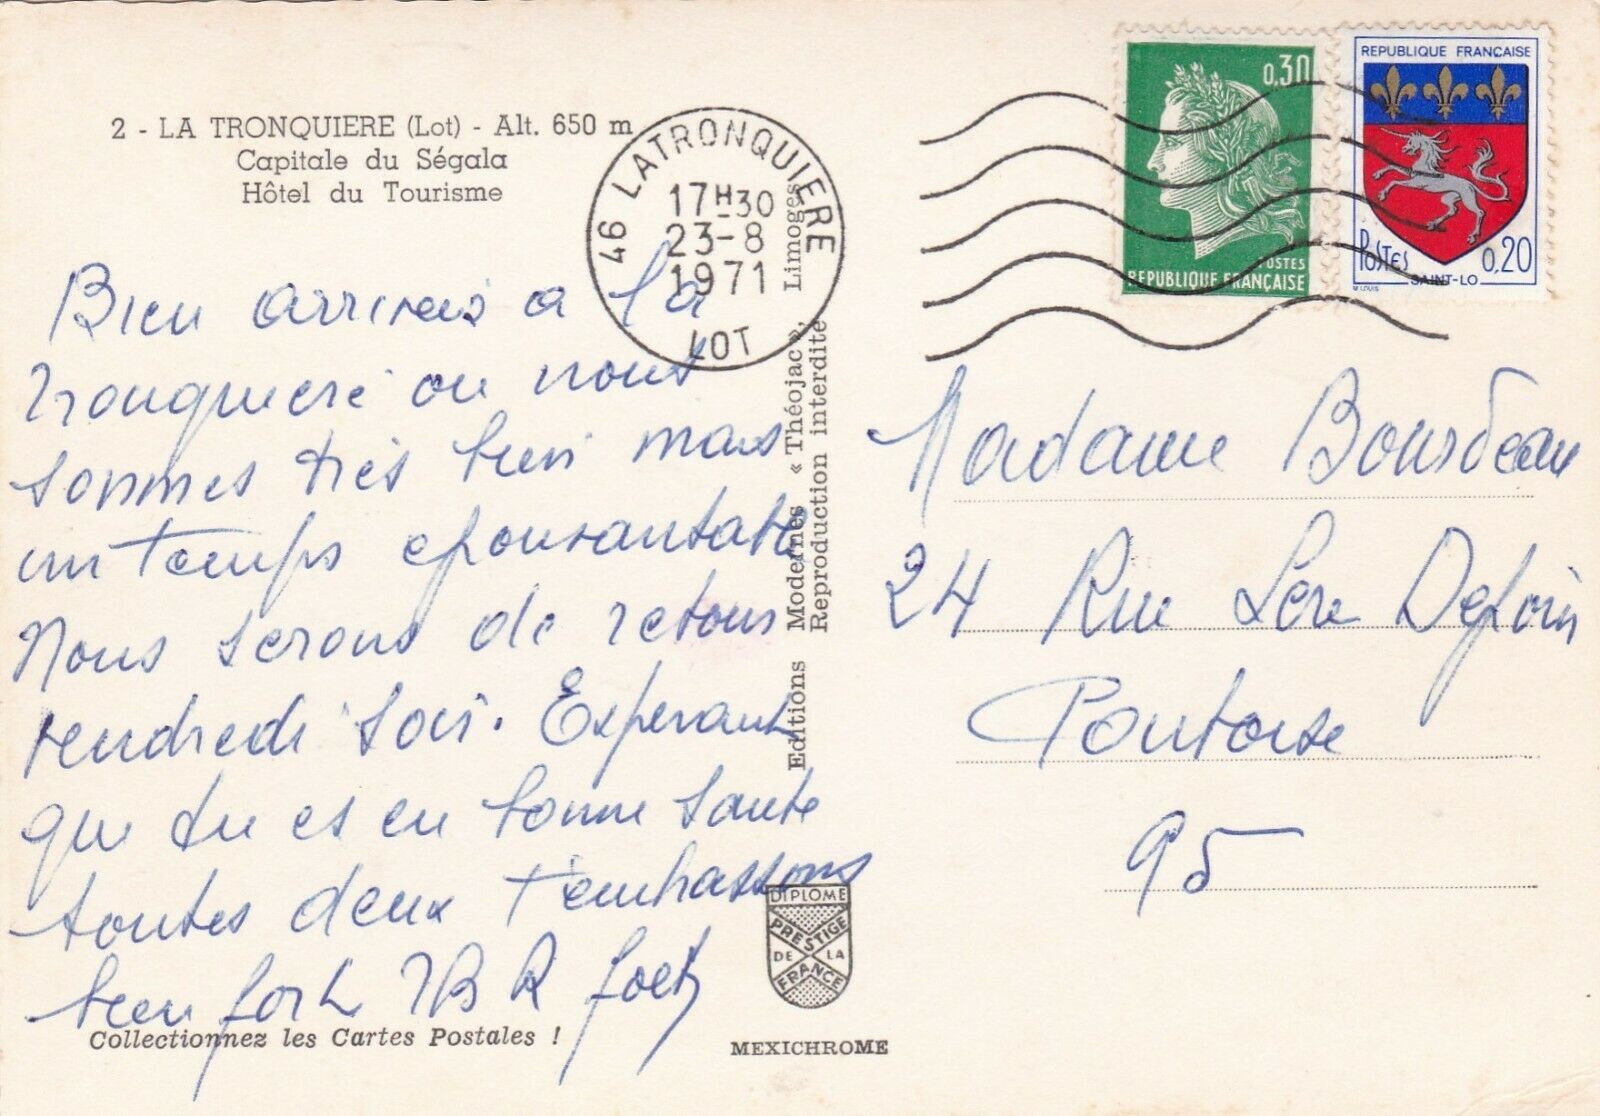 2 - LA TRONQUIERE (Lot) - Alt. 650 m
Capitale du Ségala
Hôtel du Tourisme
46 LATRONQUIERE
17H30
23-8
1971
LOT
0,30
POSTES
REPUBLIQUE FRANÇAISE
REPUBLIQUE FRANÇAISE
POSTES 0,20
SAINT-LO
M LOUIS
Bien arrivés a la
tronquiere ou nous
sommes très bien mais
un temps epouvantable
Nous serons de retour
vendredi soir. Esperant
que tu es en bonne sante
toutes deux t'embrassons
bien fort
Editions Modernes « Théojac », Limoges
Reproduction interdite
Madame Bourdeau
24 Rue
Pontoise
95
DIPLOME
PRESTIGE
DE LA
FRANCE
Collectionnez les Cartes Postales !
MEXICHROME